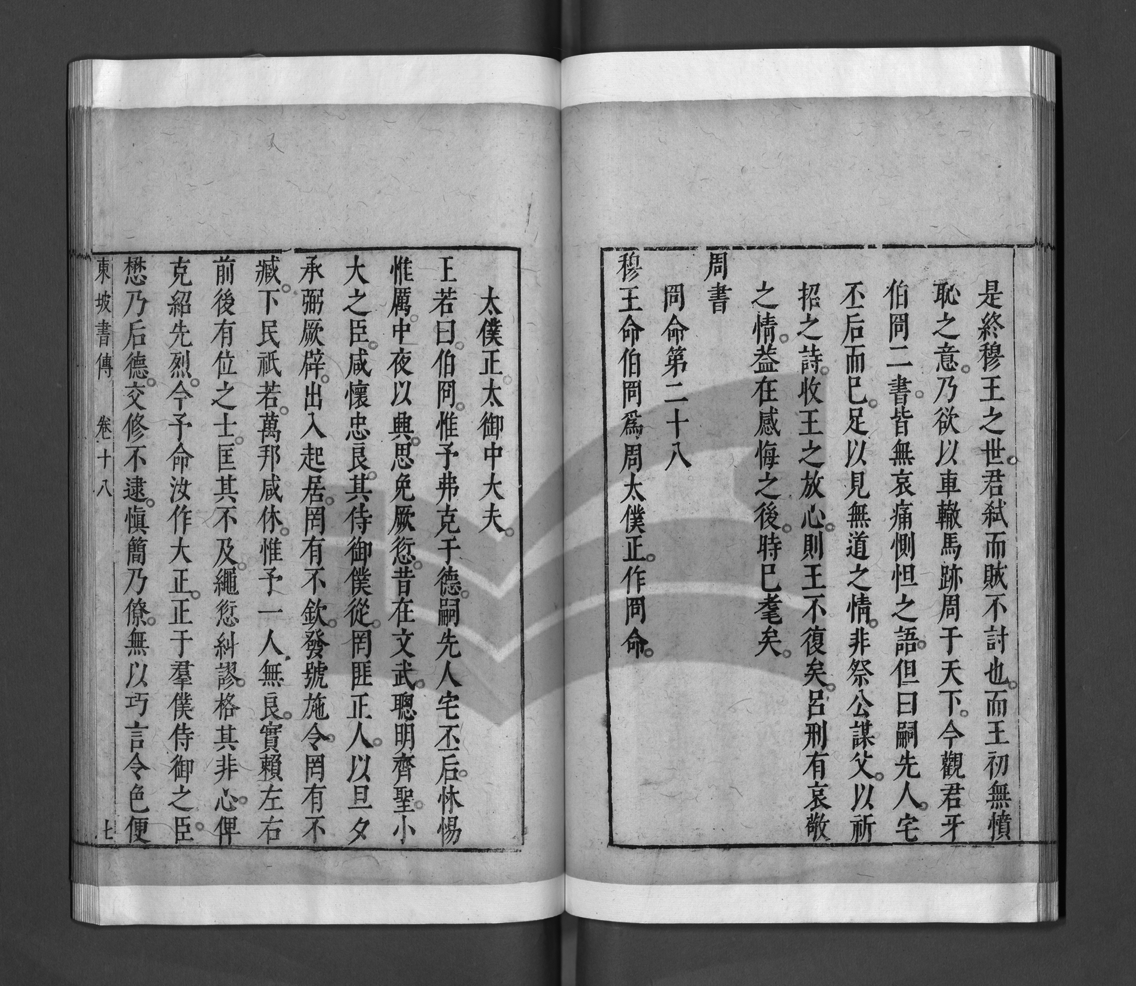 是終穆王之世。君弒而賊不討也。而王初無憤
恥之意。乃欲以車轍馬跡周于天下。今觀君牙
伯冏二書。皆無哀痛惻怛之語。但曰嗣先人。宅
丕后而已。足以見無道之情。非祭公謀父。以祈
招之詩。收王之放心。則王不復矣。呂刑有哀敬
之情。蓋在感悔之後。時已耄矣。
周書
冏命第二十八
穆王命伯冏爲周太僕正。作冏命。
太僕正。太御中大夫。
王若曰。伯冏。惟予弗克于德。嗣先人宅丕后。怵惕
惟厲。中夜以興。思免厥愆。昔在文武。聰明齊聖。小
大之臣。咸懷忠良。其侍御僕從。罔匪正人。以旦夕
承弼厥辟。出入起居。罔有不欽。發號施令。罔有不
臧。下民祇若。萬邦咸休。惟予一人無良。實賴左右
前後有位之士。匡其不及。繩愆糾謬。格其非心。俾
克紹先烈。今予命汝作大正。正于羣僕侍御之臣。
懋乃后德。交修不逮。慎簡乃僚。無以巧言令色便
東坡書傳 卷十八 七